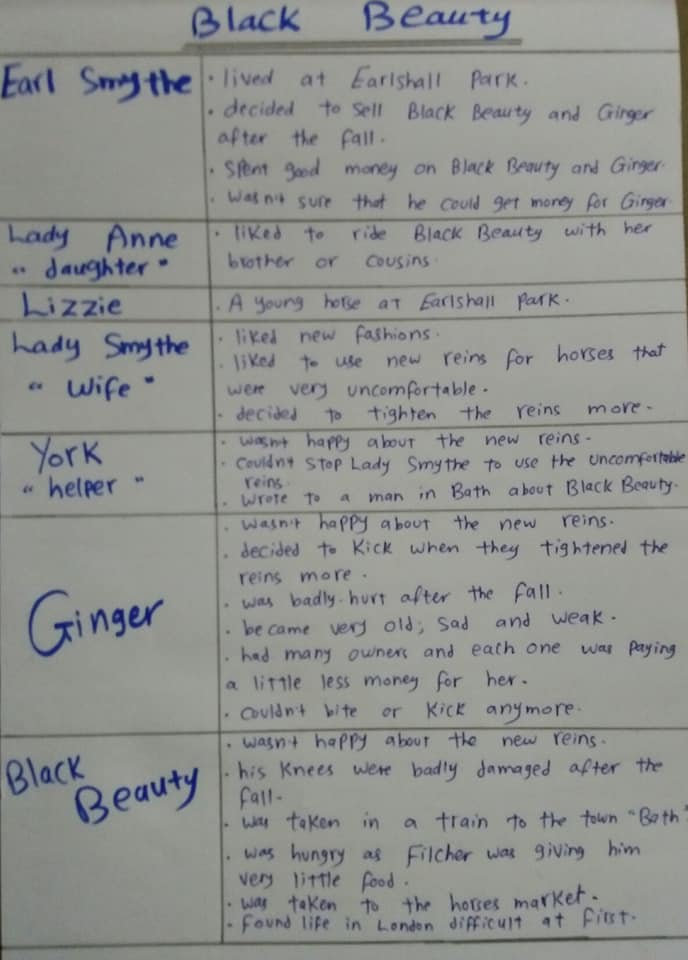 Black Beauty
Earl Smythe
• lived at Earlshall Park.
• decided to sell Black Beauty and Ginger
after the fall.
• Spent good money on Black Beauty and Ginger.
• Wasn't sure that he could get money for Ginger.
Lady Anne
"daughter"
• liked to ride Black Beauty with her
brother or cousins.
Lizzie
• A young horse at Earlshall park.
Lady Smythe
"Wife"
• liked new fashions.
• liked to use new reins for horses that
were very uncomfortable.
• decided to tighten the reins more.
York
"helper"
• wasn't happy about the new reins.
• Couldn't stop Lady Smythe to use the uncomfortable
reins.
• Wrote to a man in Bath about Black Beauty.
Ginger
• wasn't happy about the new reins.
• decided to kick when they tightened the
reins more.
• was badly-hurt after the fall.
• became very old, sad and weak.
• had many owners and each one was paying
a little less money for her.
• Couldn't bite or kick anymore.
Black
Beauty
• wasn't happy about the new reins.
• his knees were badly damaged after the
fall.
• was taken in a train to the town "Bath"
• was hungry as Filcher was giving him
very little food.
• was taken to the horses market.
• Found life in London difficult at first.